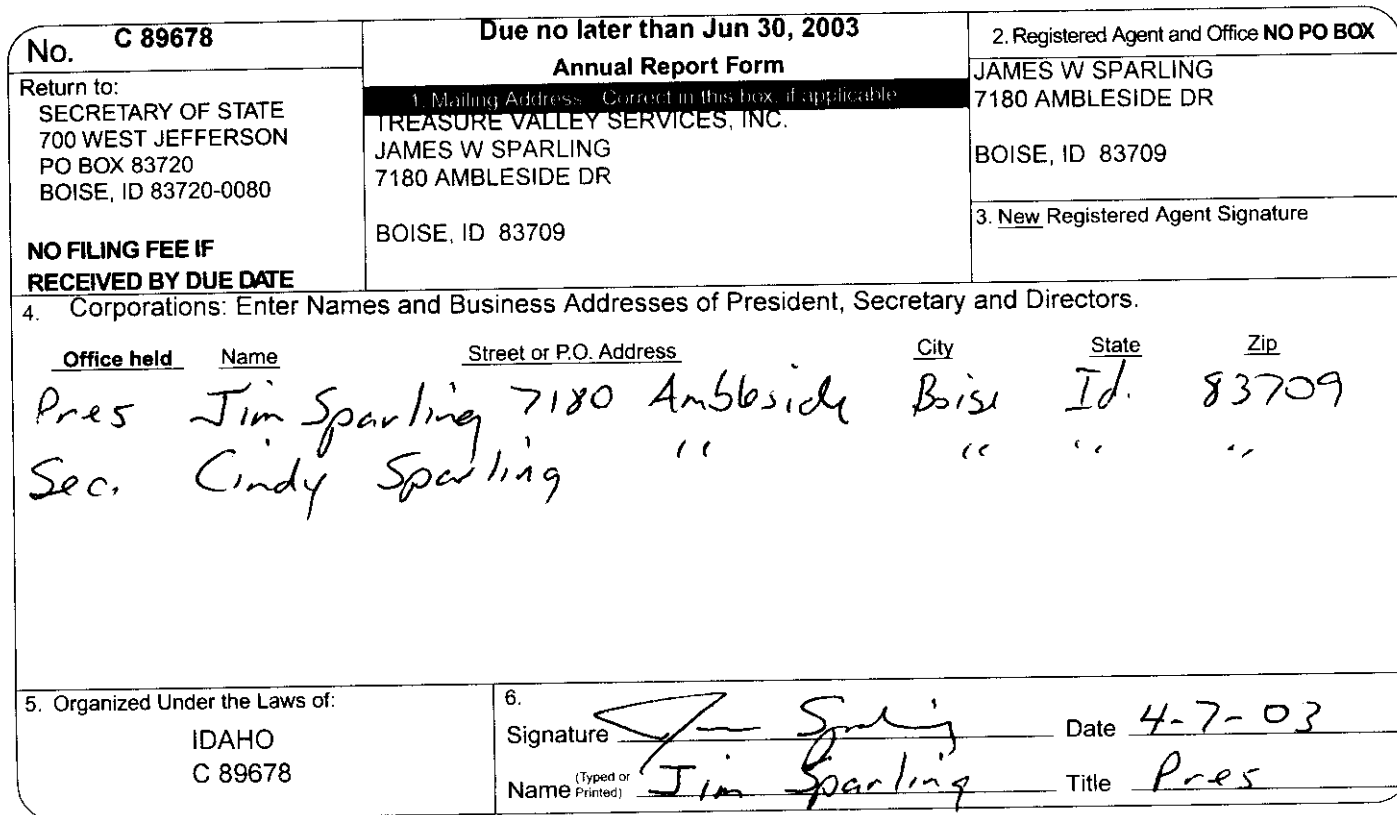 No. C 89678
Return to:
SECRETARY OF STATE
700 WEST JEFFERSON
PO BOX 83720
BOISE, ID 83720-0080
NO FILING FEE IF
RECEIVED BY DUE DATE
Due no later than Jun 30, 2003
Annual Report Form
1. Mailing Address Correct in this box, if applicable
TREASURE VALLEY SERVICES, INC.
JAMES W SPARLING
7180 AMBLESIDE DR
BOISE, ID 83709
2. Registered Agent and Office NO PO BOX
JAMES W SPARLING
7180 AMBLESIDE DR
BOISE, ID 83709
3. New Registered Agent Signature
4. Corporations: Enter Names and Business Addresses of President, Secretary and Directors.
Office held Name Street or P.O. Address City State Zip
Pres Jim Sparling 7180 Ambleside Boise Id. 83709
Sec. Cindy Sparling " " " "
5. Organized Under the Laws of:
IDAHO
C 89678
6.
Signature Jim Sparling Date 4-7-03
Name (Typed or Printed) Jim Sparling Title Pres